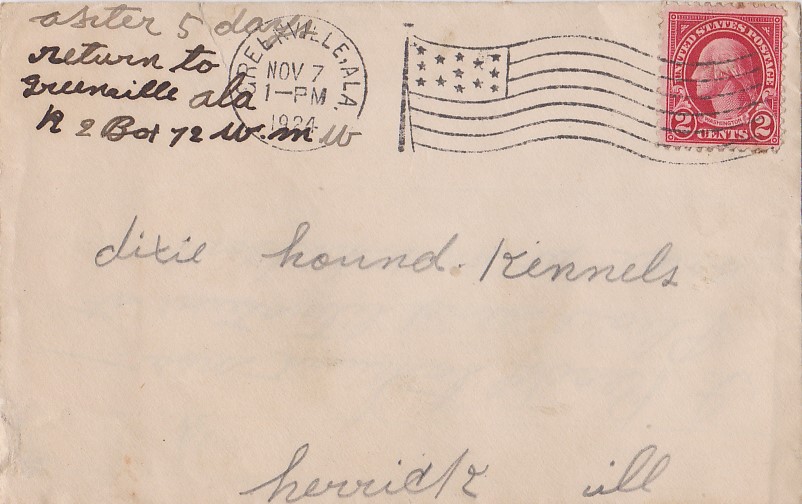 after 5 days
return to
Greenville ala
R 2 Box 72 W m W
GREENVILLE, ALA.
NOV 7
1-PM
1924
UNITED STATES POSTAGE
WASHINGTON
2 CENTS 2
dixie hound. Kennels
herrick ill